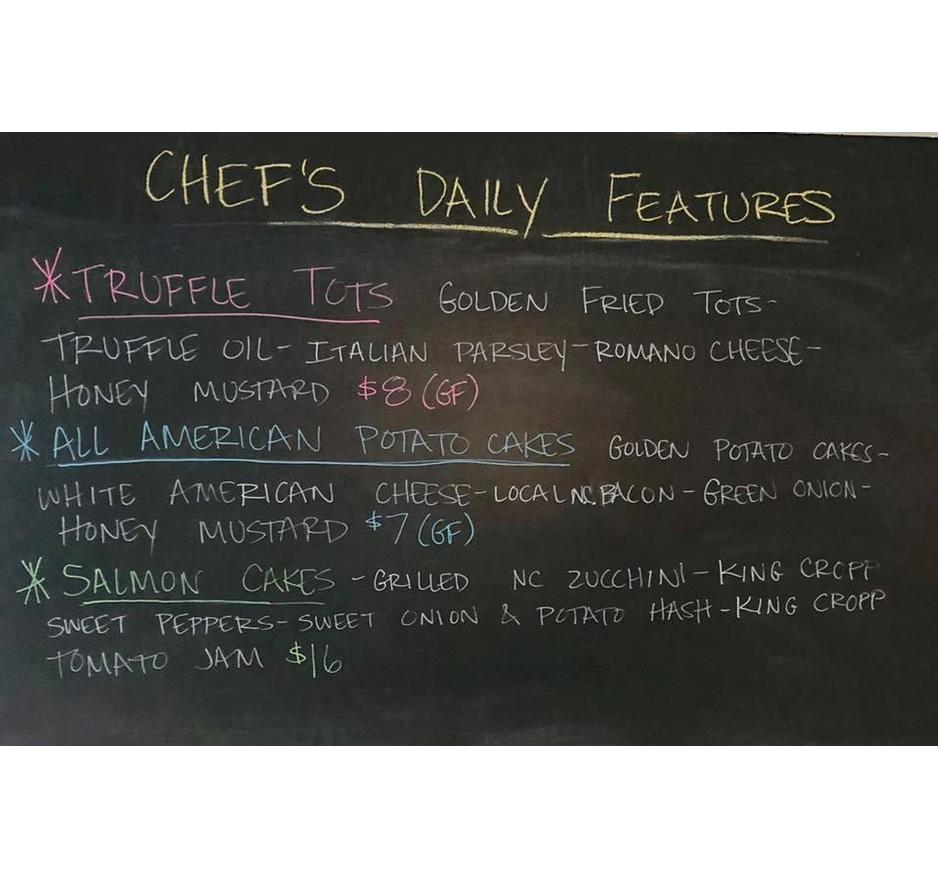 CHEF'S DAILY FEATURES
*TRUFFLE TOTS GOLDEN FRIED TOTS-
TRUFFLE OIL- ITALIAN PARSLEY-ROMANO CHEESE-
HONEY MUSTARD $8 (GF)
*ALL AMERICAN POTATO CAKES GOLDEN POTATO CAKES-
WHITE AMERICAN CHEESE-LOCAL NC BACON-GREEN ONION-
HONEY MUSTARD $7 (GF)
*SALMON CAKES -GRILLED NC ZUCCHINI-KING CROPP
SWEET PEPPERS-SWEET ONION & POTATO HASH-KING CROPP
TOMATO JAM $16